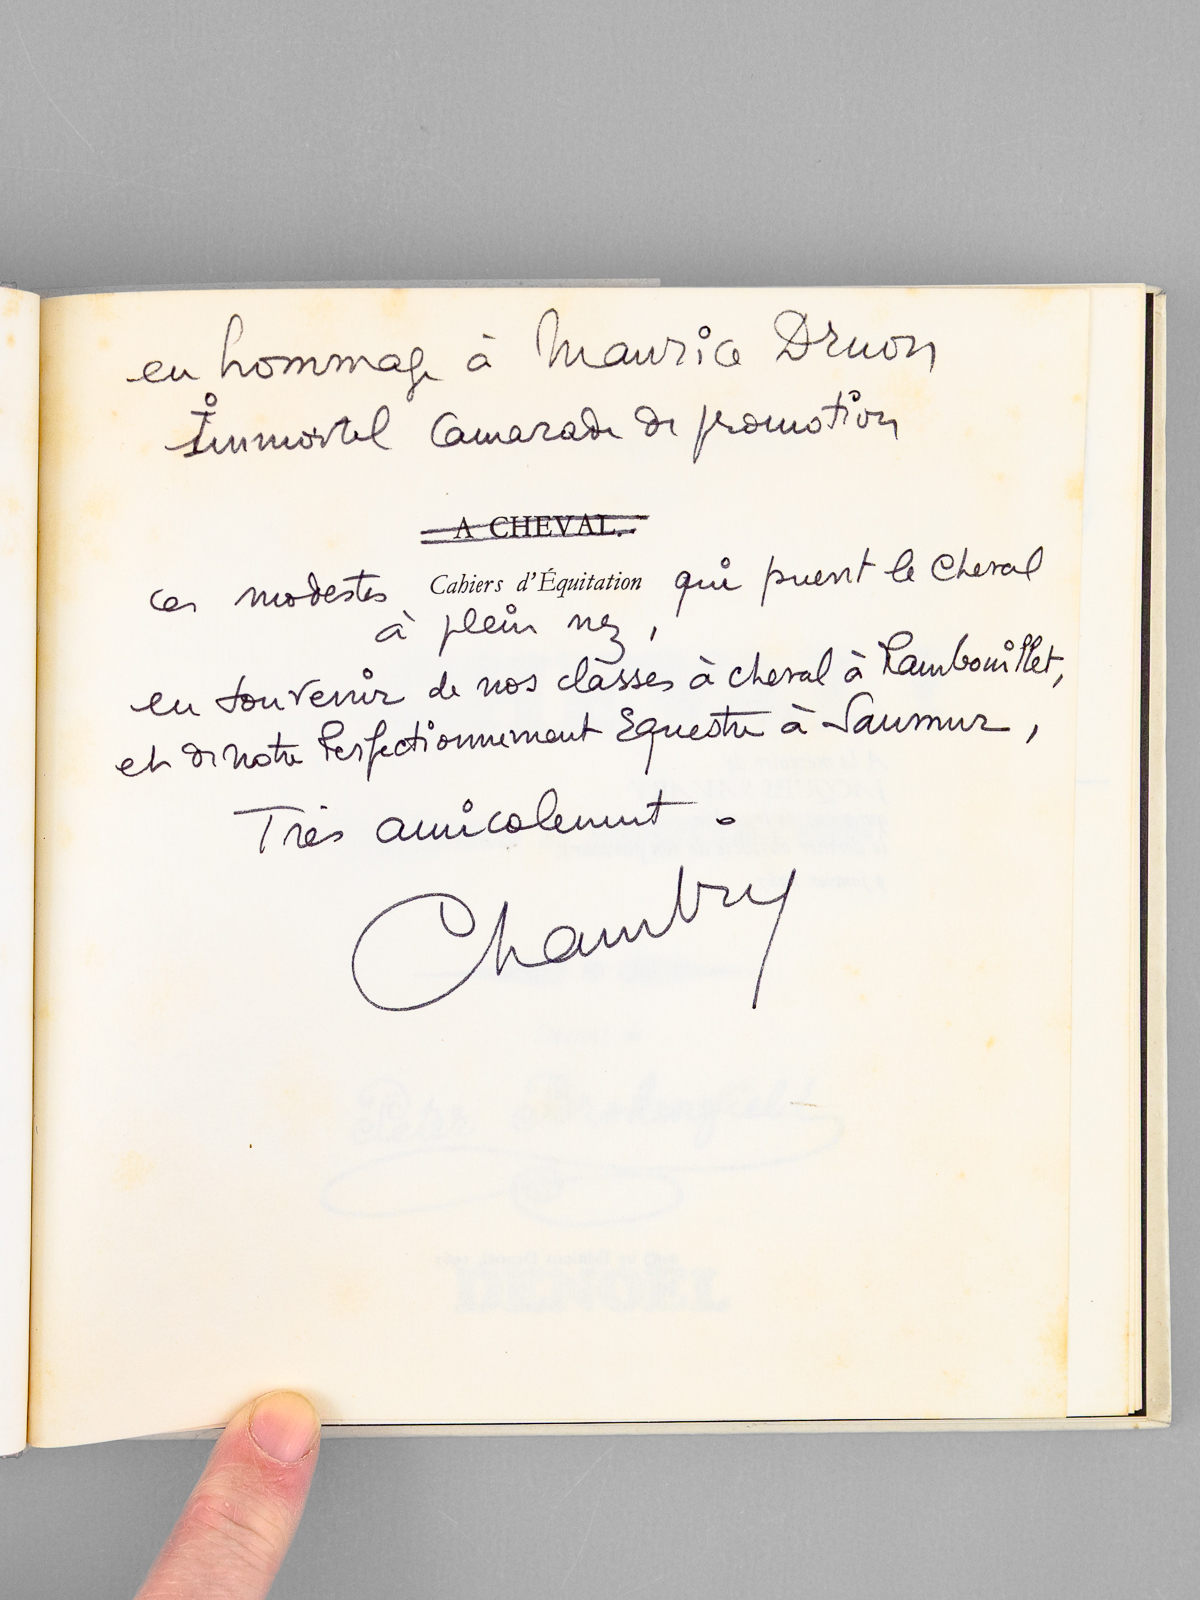 en hommage à Maurice Druon
Immortel Camarade de promotion
A CHEVAL.
ces modestes Cahiers d'Équitation qui puent le cheval
à plein nez,
en souvenir de nos classes à cheval à Rambouillet,
et de notre Perfectionnement Equestre à Saumur,
Très amicalement.
Chambry
DENOËL